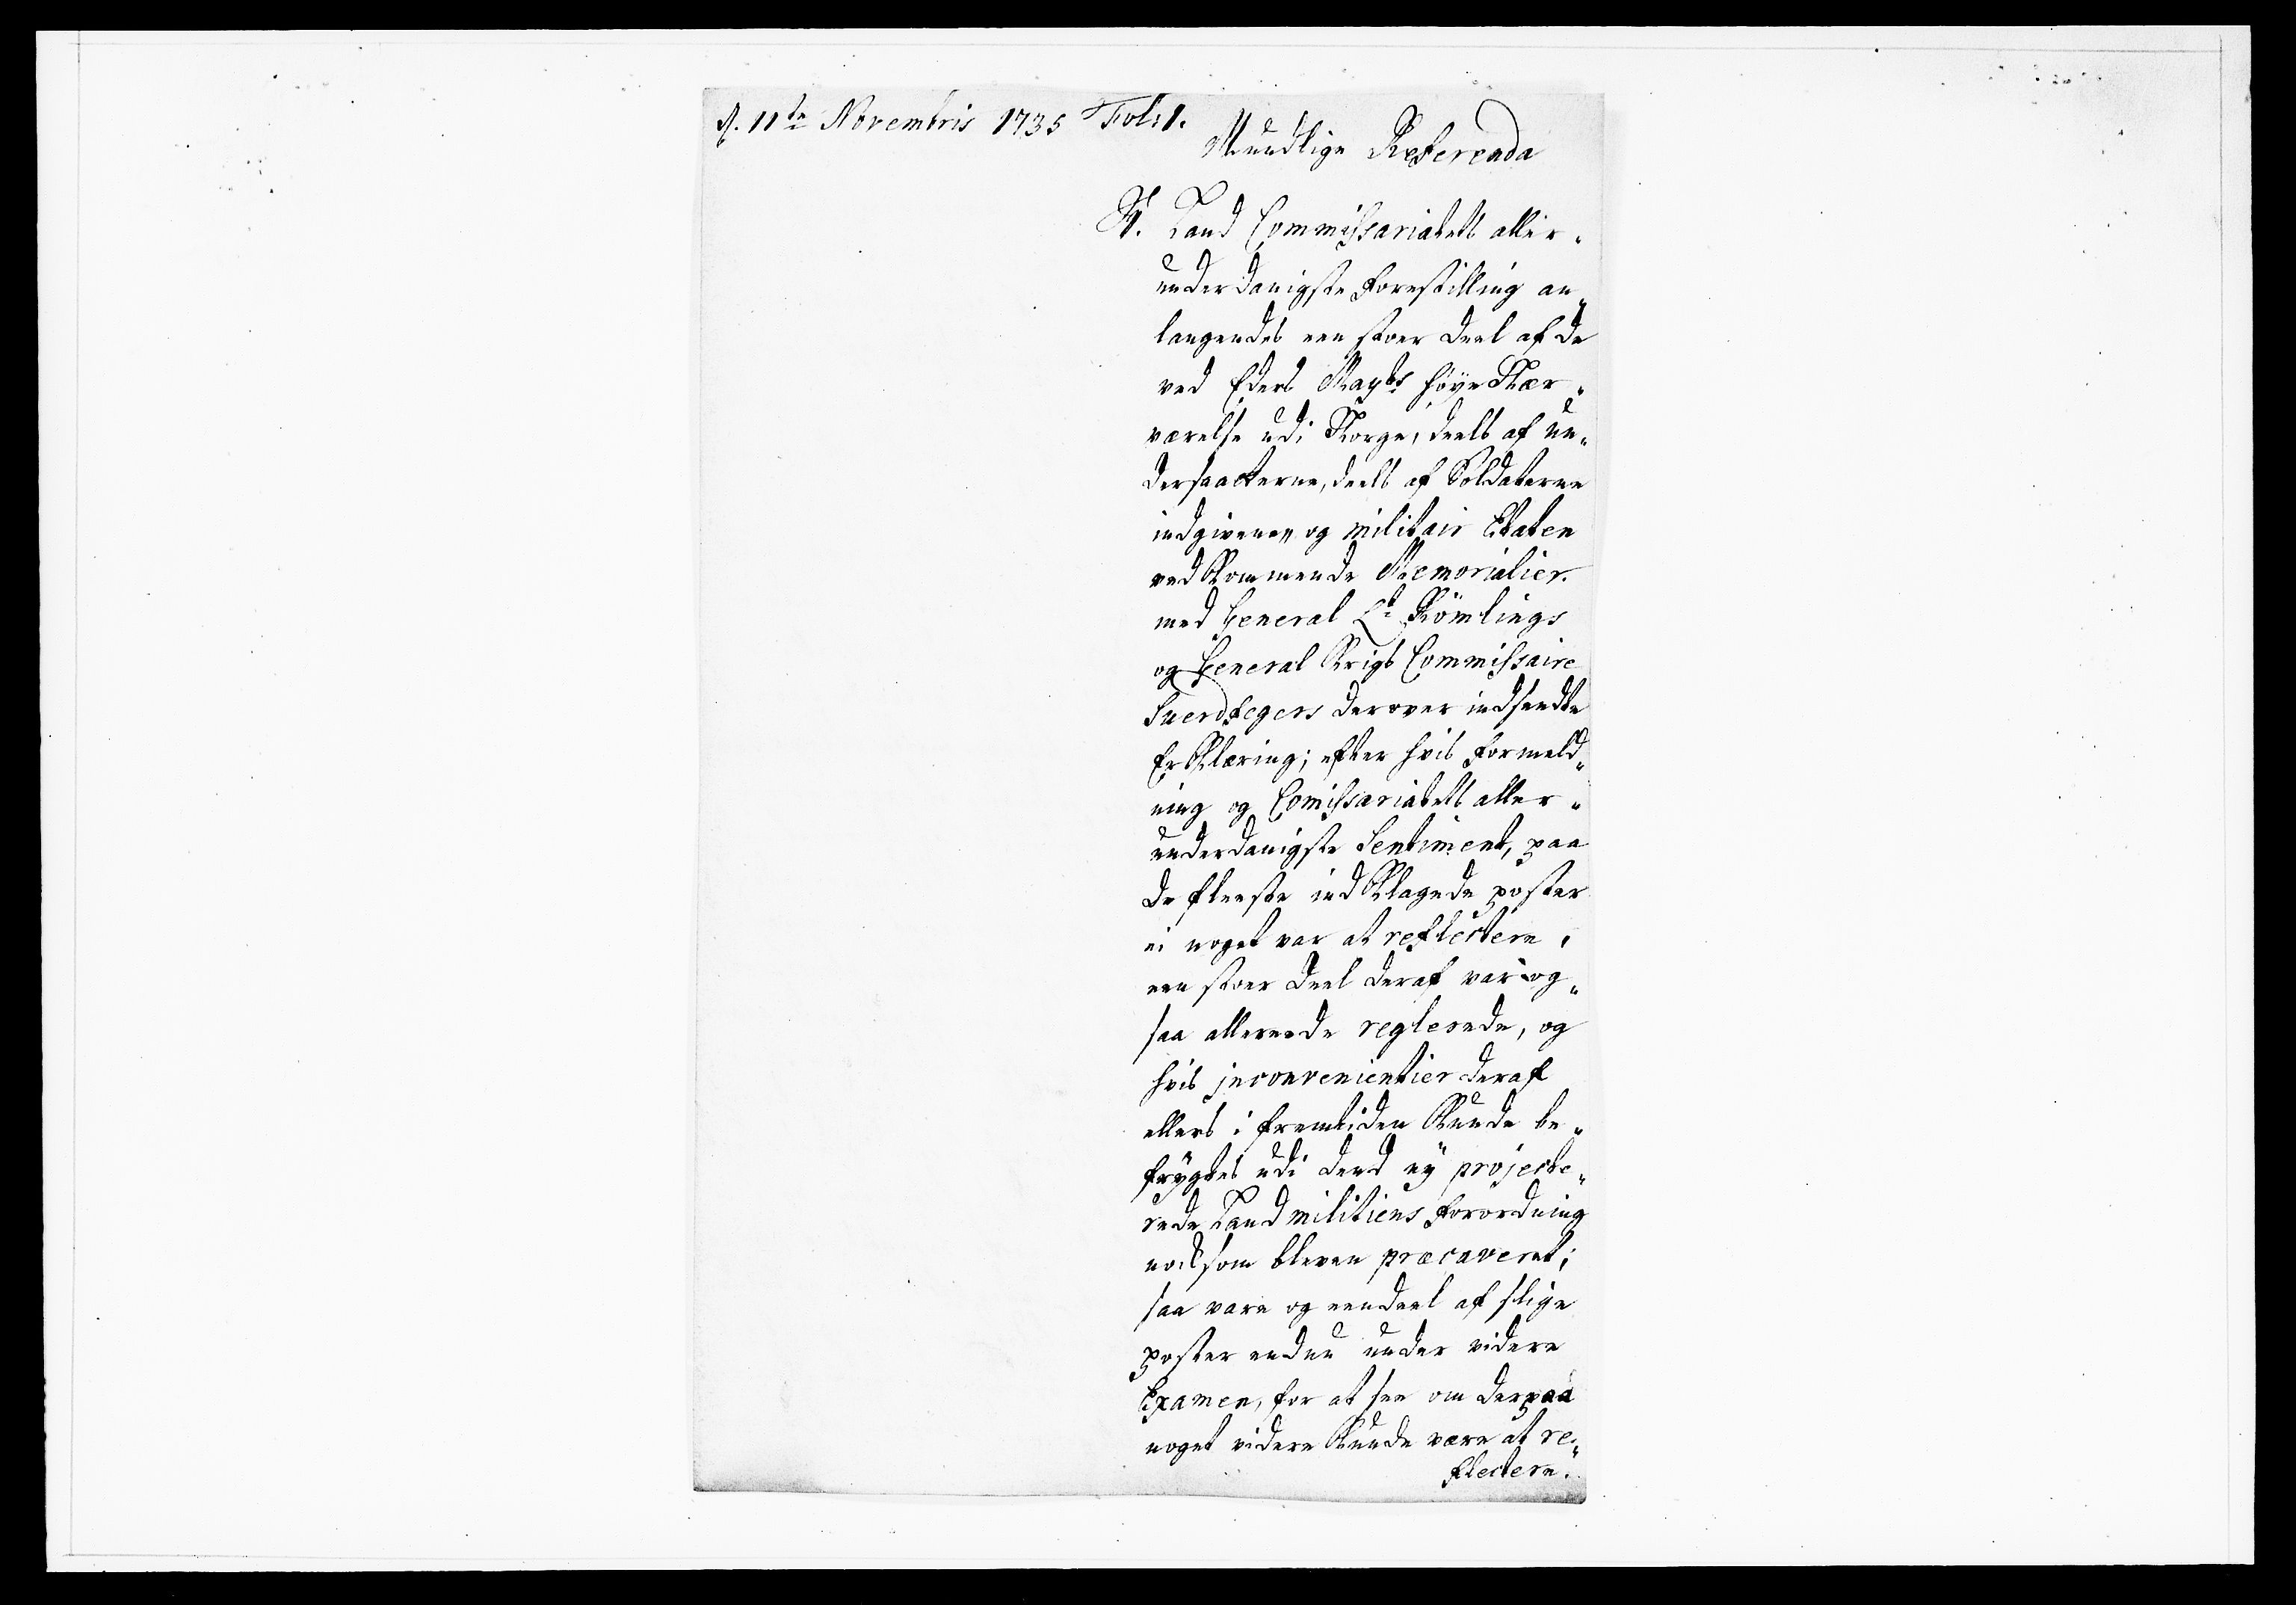 d. 11te Novembris 1735 Fol: 1.
Mundlige Referenda
Land Commissariatets aller-
underdanigste Forestilling an-
langendes een stoer Deel af de
ved Eders Mayts høye Nær-
værelse udi Norge, deels af un-
dersaatterne, deels af Soldaterne
indgivene, og militair Etaten
vedkommende Memorialier.
med General Lt Römlings
og General Krigs Commissaire
Suerdfegers derover indsendte
Erklæring; efter hvis formeld-
ning og Comissariatets aller-
underdanigste Sentiment, paa
de fleeste indklagede poster
ei noget var at reflectere,
een stoer Deel deraf var og-
saa allereede reglerede, og
hvis jnconvenientier deraf
ellers i fremtiden kunde be-
frygtes udi dend ny projecte-
rede Land militiens forordning
nocksom bleven præcaveret;
saa vare og eendeel af slige
poster endnu under videre
Examen, for at see om derpaa
noget videre kunde være at re-
flectere.